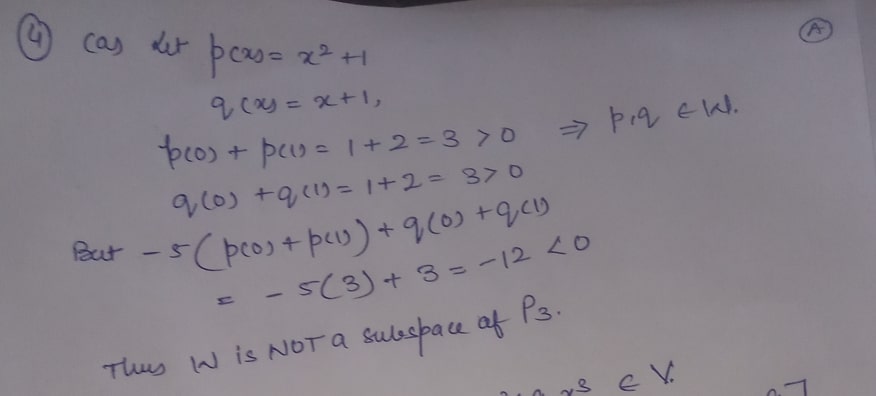 ④ (a) Let p(x) = x² + 1 Ⓐ
q(x) = x + 1,
p(0) + p(1) = 1 + 2 = 3 > 0 ⇒ p, q ∈ W.
q(0) + q(1) = 1 + 2 = 3 > 0
But - 5 (p(0) + p(1)) + q(0) + q(1)
= - 5(3) + 3 = -12 < 0
Thus W is NOT a subspace of P3.
x³ ∈ V.